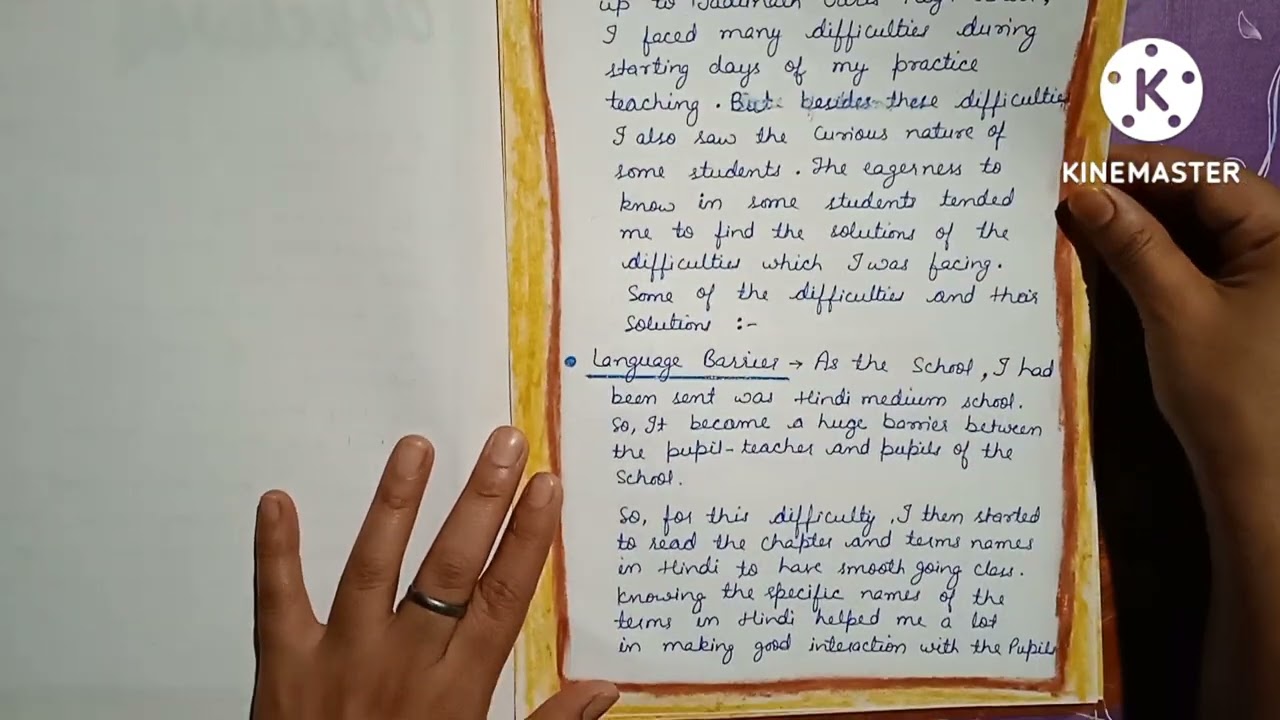 up to
I faced many difficulties during
starting days of my practice
teaching. But besides these difficulties
I also saw the curious nature of
some students. The eagerness to
know in some students tended
me to find the solutions of the
difficulties which I was facing.
Some of the difficulties and their
solutions :-
• Language Barrier → As the School, I had
been sent was Hindi medium school.
So, It became a huge barrier between
the pupil-teacher and pupils of the
School.
So, for this difficulty, I then started
to read the chapter and terms names
in Hindi to have smooth going class.
Knowing the specific names of the
terms in Hindi helped me a lot
in making good interaction with the Pupils
K
KINEMASTER